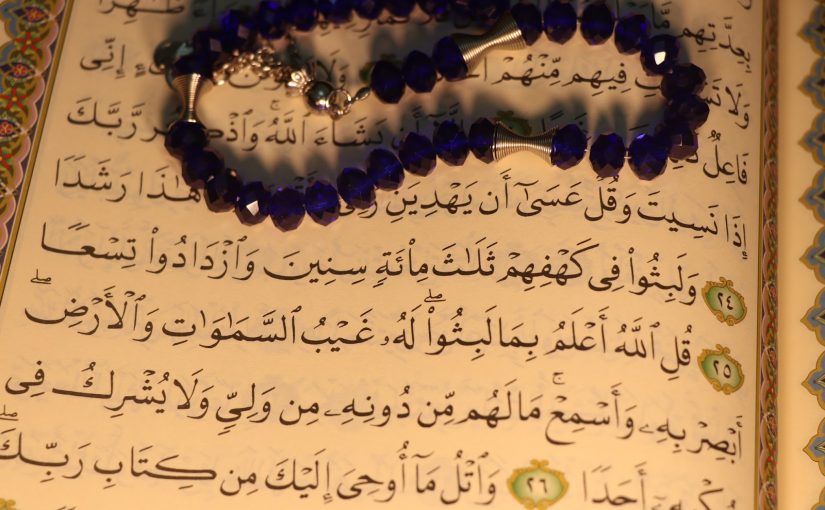 بِعِدَّتِهِم
فِيهِم مِّنْهُمْ إِنِّى
فَاعِلٌ أَن يَشَآءَ ٱللَّهُ ۚ رَّبَّكَ
إِذَا نَسِيتَ وَقُلْ عَسَىٰٓ أَن يَهْدِيَنِ هَٰذَا رَشَدًا
٢٤ وَلَبِثُوا۟ فِى كَهْفِهِمْ ثَلَٰثَ مِا۟ئَةٍ سِنِينَ وَٱزْدَادُوا۟ تِسْعًا
٢٥ قُلِ ٱللَّهُ أَعْلَمُ بِمَا لَبِثُوا۟ ۖ لَهُۥ غَيْبُ ٱلسَّمَٰوَٰتِ وَٱلْأَرْضِ ۖ
أَبْصِرْ بِهِۦ وَأَسْمِعْ ۚ مَا لَهُم مِّن دُونِهِۦ مِن وَلِىٍّ وَلَا يُشْرِكُ فِى
حُكْمِهِۦٓ أَحَدًا ٢٦ وَٱتْلُ مَآ أُوحِىَ إِلَيْكَ مِن كِتَابِ رَبِّكَ ۖ